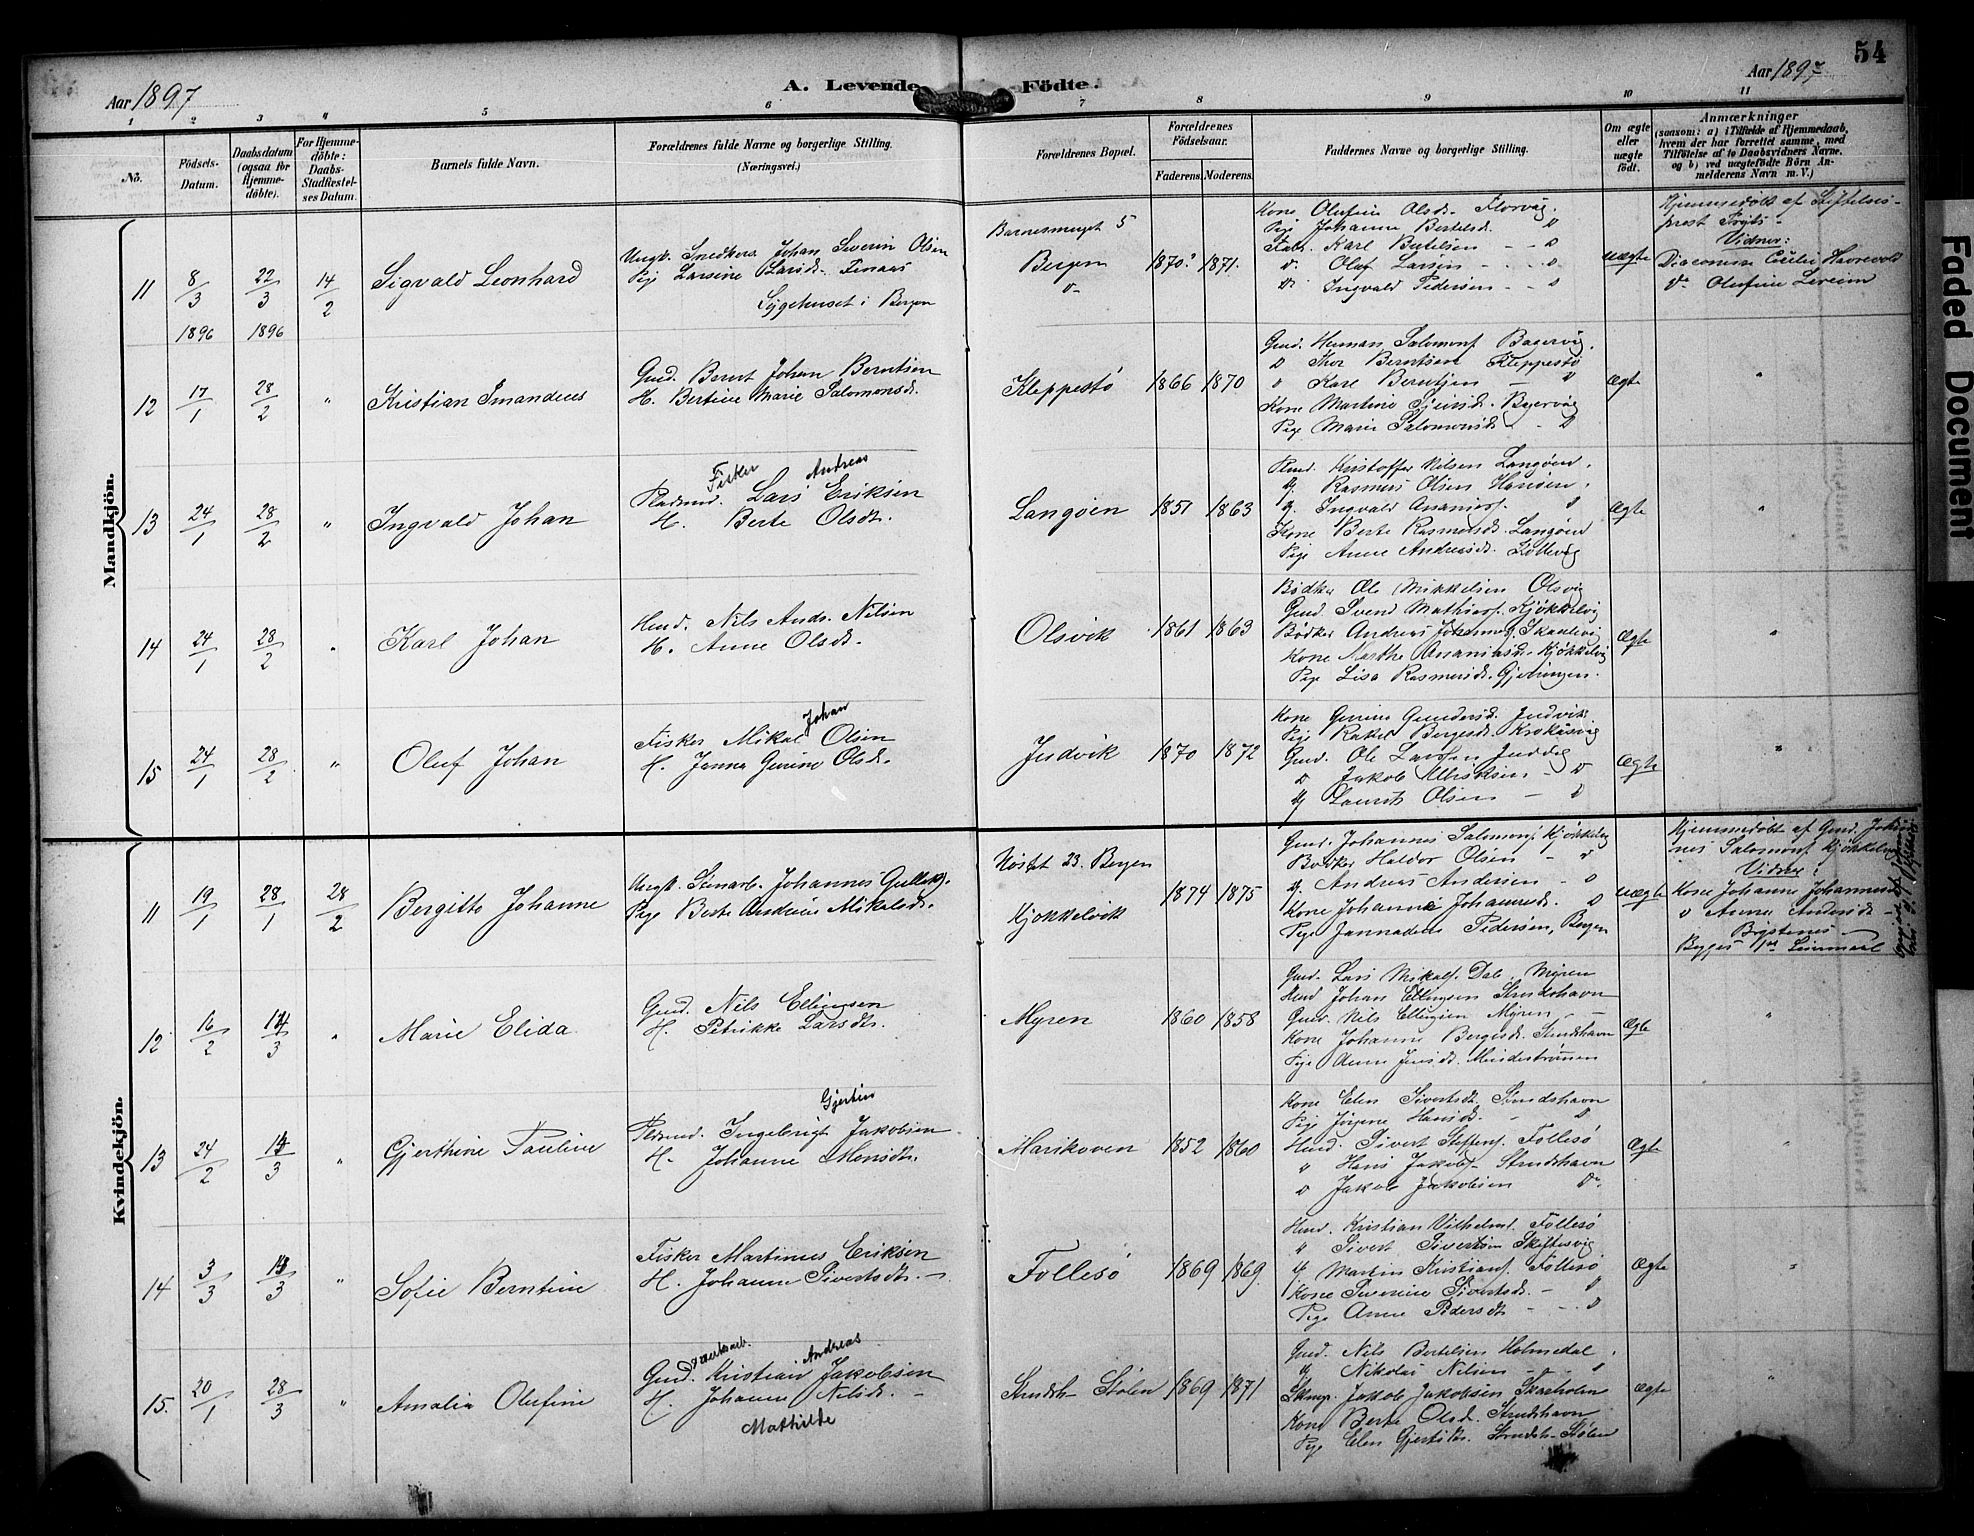 54
Aar 1897
A. Levende Födte.
Aar 1897
1 2 3 4 5 6 7 8 9 10 11
No.
Födsels-Datum.
Daabsdatum (ogsaa for Hjemme-döbte).
For Hjemme-döbte: Daabs-Stadfæstel-ses Datum.
Barnets fulde Navn.
Forældrenes fulde Navne og borgerlige Stilling.
(Næringsvei.)
Forældrenes Bopæl.
Forældrenes Födselsaar.
Faderens. Moderens.
Faddernes Navne og borgerlige Stilling.
Om ægte eller uægte födt.
Anmærkninger
(saasom: a) i Tilfælde af Hjemmedaab,
hvem der har forrettet samme, med
Tilföielse af to Daabsvidners Navne.
og b) ved uægtefödte Börn An-
melderens Navn m. V.)
Mandkjön.
11 8/3 1896 22/3 1896 14/2 Sigvald Leonhard
Ungk. Snedkers. Johan Severin Olsen
Pig Larsine Larsd. Finaas
Sygehuset i Bergen
Barnesmuget 5
Bergen
1870? 1871.
Kone Olufine Olsd. Florvåg.
Pige Johanne Bertelsd. D
Karl Bertelsen - - D
Do. Oluf Larsen - - D
Do Ingvald Pedersen - - D
uægte
Hjemmedøbt af Stiftelses-
prest
Vidner:
Diaconisse Cecilie Havrevold
Do Olufine
12 17/1 28/2 " Kristian Smandeus
Gmd. Bernt Johan Berntsen
H. Bertine Marie Salomonsd.
Kleppestø
1866 1870
Gmd. Herman Salomons. Bagervig.
D Thor Berntsen Kleppestø
" Karl Berntsen - "
Kone Martine Bagervåg
Pige Marie Salomonsd. - D
Ægte "
13 24/1 28/2 " Ingvald Johan
Fisker Andreas
Pladsmd. Lars Eriksen
H. Berte Olsdt.
Langøen
1851 1863
Pmd. Kristoffer Nilsen Langøen.
Y. Rasmus Olsen Hansen.
Y. Ingvald Ananias. D
Kone Berte Rasmusd. Langøen
Pige Anne Andreasd.
Ægte "
14 24/1 28/2 " Karl Johan
Hmd. Nils Ands. Nilsen
H. Anne Olsdt.
Olsvik
1861 1863
Bødker Ole Mikkelsen Olsvig
Gmd. Svend Mathias. Kjøkkelvig
Bødker Andreas Johannes. Skaalevig
Kone Marthe Ananiasd. Kjøkkelvig
Pige Lisa Rasmusd. Gjetvingen.
Ægte "
15 24/1 28/2 " Oluf Johan
Johan
Fisker Mikal Olsen
H. Janna Gurine Olsd.
Judvik
1870 1872
Kone Gurine Gundersd. Judvik.
Pige Rakel Bergesd. Krokåsvig
Gmd. Ole Larsen Juddal
D Jakob Albriktsen - D
Y Laurits Olsen - D
Ægte "
Kvindekjön.
11 19/1 28/1 28/2 Bergitte Johanne
Ungk. Stenarb. Johannes Gullaks.
Pige Berte Andrine Mikalsd.
Nøstet 23. Bergen
Kjøkkelvik
1874 1875
Gmd. Johannes Salomons. Kjøkkelvig
Bødker Haldor Olsen - D
Y. Andreas Andersen - D
Kone Johanne Johannesd. D
Pige Jannadena Pedersen, Bergen
uægte
Hjemmedøbt af Gmd. Johan-
nes Salomons. Kjøkkelvig
Vidner:
Kone Johanne Johannesd
D Anna Andersd. -
Begges 1ste Leiermaal
12 16/2 14/3 " Marie Elida
Gmd. Nils Ellingsen
H. Petrikke Larsdtr.
Myren
1860 1858
Gmd. Lars Mikals. Dal, Myren
Hmd Johan Ellingsen Strudshavn
Gmd. Nils Ellingsen Myren -
Kone Johanne Bergesd. Strudshavn
Pige Anne Jensdt. Mindestrømen
Ægte "
13 24/2 14/3 " Gjerthine Pauline
Gjertius
Pladsmd. Ingebrigt Jakobsen
H. Johanne Monsdtr.
Marikoven
1852 1860
Kone Elen Sivertsdt. Strudshavn
Pig Jørgene Hansdt. - D
Hmd. Sivert Steffens. Follesø
" Hans Jakobs. Strudshavn
D Jakob Jakobsen Do.
Ægte "
14 3/3 14/3 " Sofie Berntine
Fisker Martinus Eriksen
H. Johanne Sivertsdtr.
Follesø
1869 1869
Hmd. Kristian Vilhelmsd. Follesø
" Sivert Sivertsen Skiftesvig
Y. Martin Kristians. Follesø
Kone Severine Sivertsdt. - D
Pige Anne Pedersdt - - D
Ægte "
15. 20/1 28/3 " Amalia Olufine
Andreas
Gmd. Kristian Jakobsen
H. Johanne Nilsdt. -
Mathilde
Strudsh. Stølen
1869 1871
Gmd. Nils Bertelsen Holmedal.
Y Nikolai Nilsen - - "
Skmp. Jakob Jakobsen Skarholen
Kone Berte Olsd. Strudshavn
Pige Elen Gjertsdt. Strudsh. Stølen
Ægte "
Faded Document